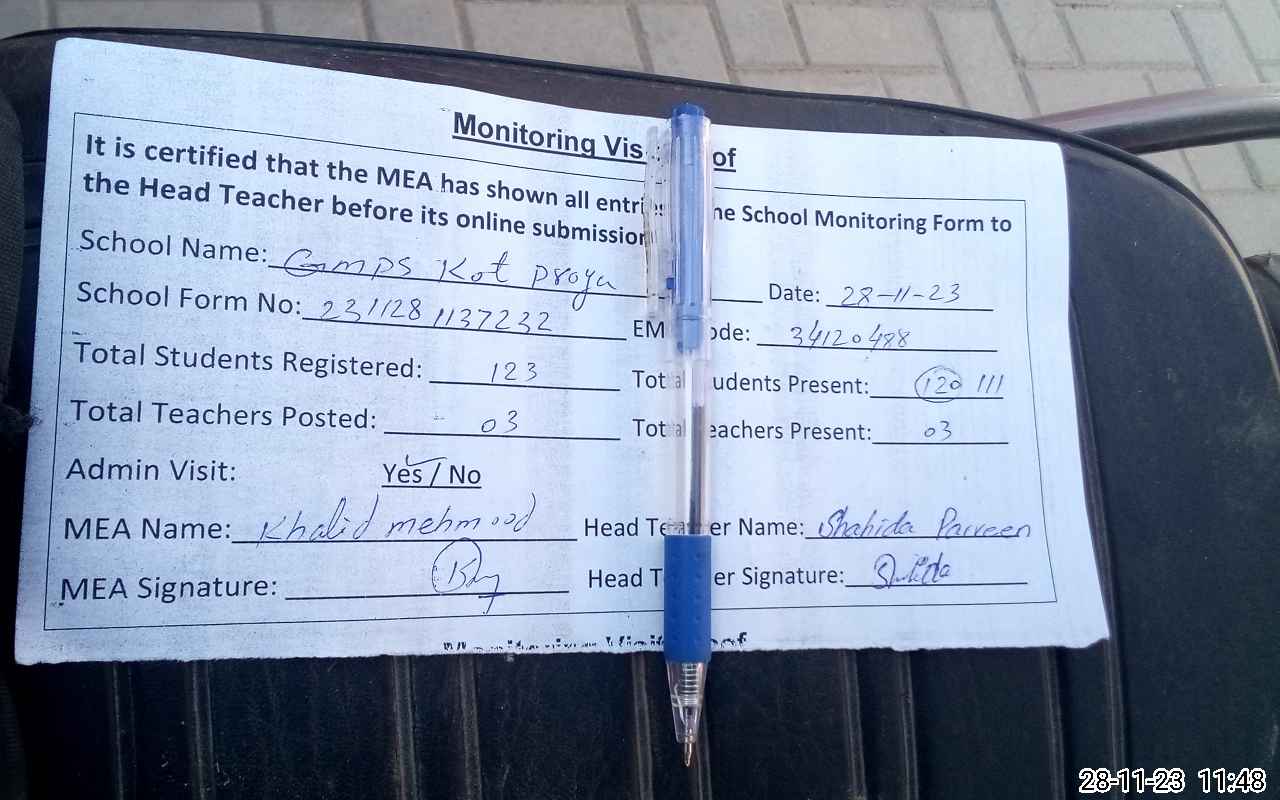 Monitoring Vis of
It is certified that the MEA has shown all entri he School Monitoring Form to
the Head Teacher before its online submission
School Name: Gmps Kot proya Date: 28-11-23
School Form No: 231128 1137232 EM ode: 34120488
Total Students Registered: 123 Total Students Present: 120 111
Total Teachers Posted: 03 Total Teachers Present: 03
Admin Visit: Yes / No
MEA Name: Khalid mehmood Head Teacher Name: Shahida Parveen
MEA Signature: Head T er Signature: Shahida
28-11-23 11:48